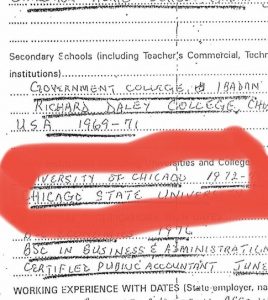 Secondary Schools (including Teacher's Commercial, Techn
institutions)
GOVERNMENT COLLEGE, IBADAN
RICHARD DALEY COLLEGE, CHI
U.S.A 1969-71
sities and College
VERSITY OF CHICAGO 1972-
HICAGO STATE UNIVER
1976
BSC IN BUSINESS & ADMINISTRATION
CERTIFIED PUBLIC ACCOUNTANT JUNE
WORKING EXPERIENCE WITH DATES (State employer, na